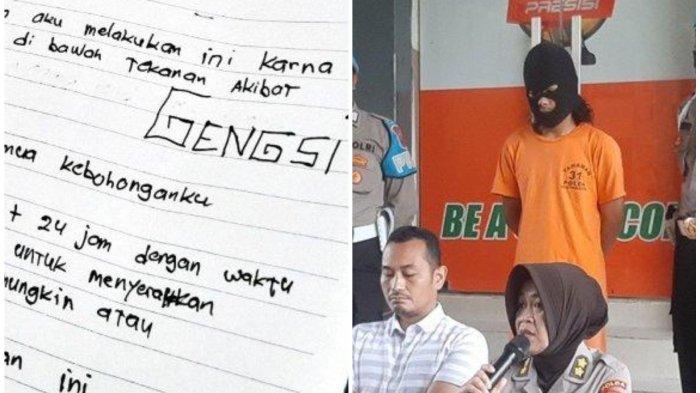 aku melakukan ini karna
di bawah Tekanan Akibat
GENGSI
kebohonganku
+ 24 jam dengan waktu
untuk menyerahkan
atau
ini
PRESISI
POLRI
TAHANAN
31
POLDA
BE A
POLDA